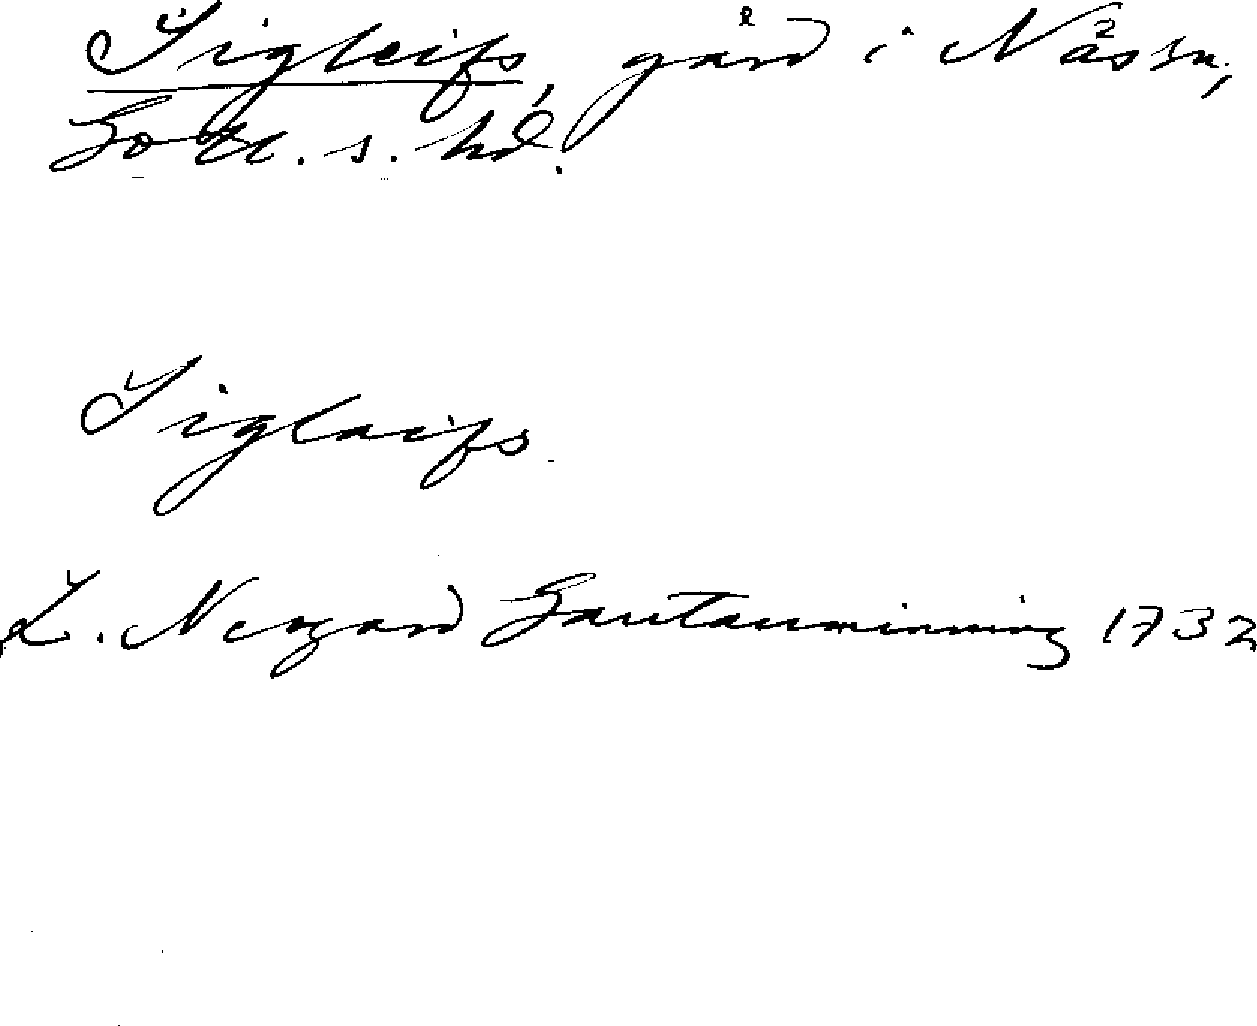 Sigleifs, gård i Näs sn,
Gotl. s. hd.
Siglaifs
L. Nergard Gautauminning 1732